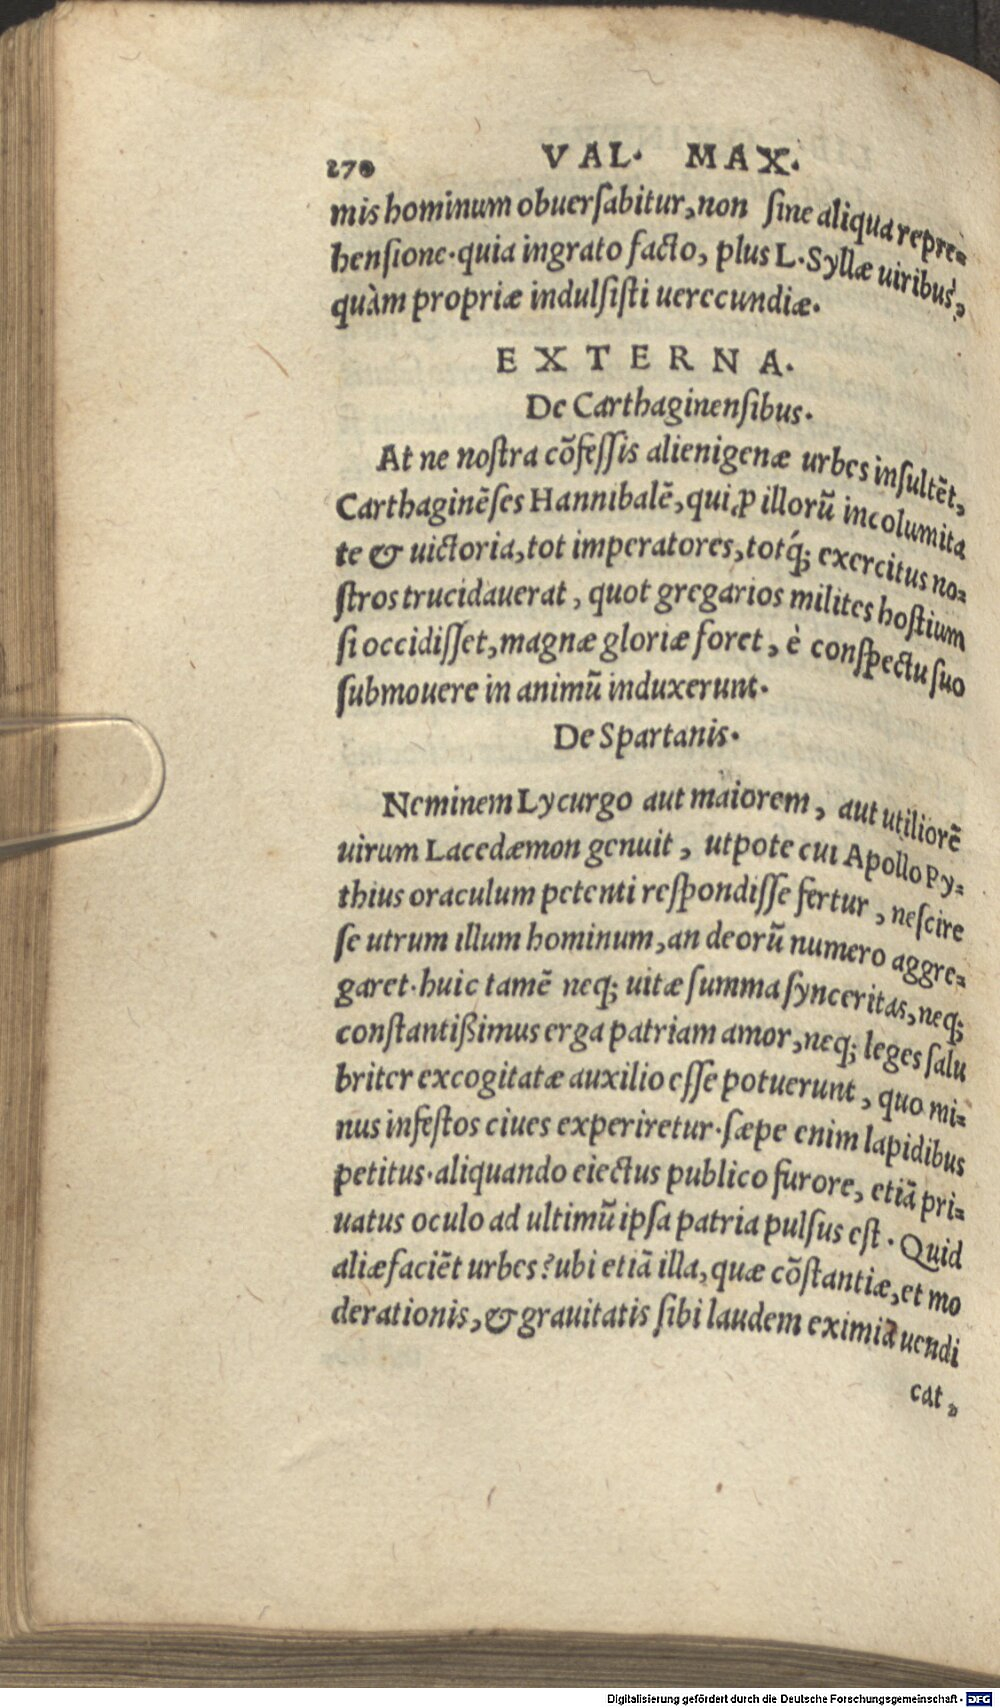 270 VAL. MAX.
mis hominum obuersabitur, non sine aliqua repre=
hensione. quia ingrato facto, plus L. Syllæ uiribus,
quàm propriæ indulsisti uerecundiæ.
EXTERNA.
De Carthaginensibus.
At ne nostra cõfessis alienigenæ urbes insultẽt,
Carthaginẽses Hannibalẽ, qui ꝓ illorũ incolumita
te & uictoria, tot imperatores, totq́; exercitus no=
stros trucidauerat, quot gregarios milites hostium
si occidisset, magnæ gloriæ foret, è conspectu suo
submouere in animũ induxerunt.
De Spartanis.
Neminem Lycurgo aut maiorem, aut utiliorẽ
uirum Lacedæmon genuit, utpote cui Apollo Py=
thius oraculum petenti respondisse fertur, nescire
se utrum illum hominum, an deorũ numero aggre=
garet. huic tamẽ neq; uitæ summa synceritas, neq;
constantißimus erga patriam amor, neq; leges salu
briter excogitatæ auxilio esse potuerunt, quo mi=
nus infestos ciues experiretur. sæpe enim lapidibus
petitus. aliquando eiectus publico furore, etiã pri=
uatus oculo ad ultimũ ipsa patria pulsus est. Quid
aliæ faciẽt urbes? ubi etiã illa, quæ cõstantiæ, et mo
derationis, & grauitatis sibi laudem eximiã uendi
cat,
Digitalisierung gefördert durch die Deutsche Forschungsgemeinschaft - DFG